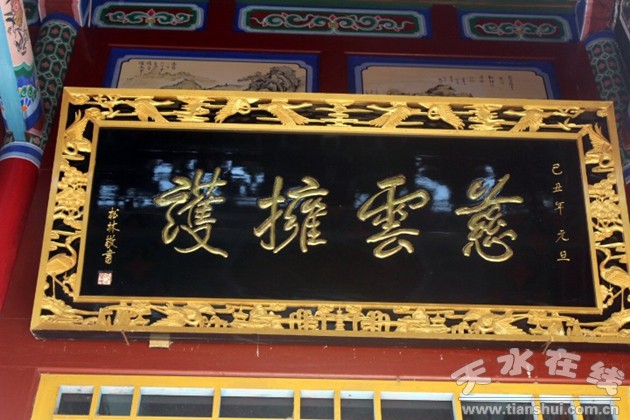 己丑年元旦
慈雲擁護
松林敬書
天水在线
www.tianshui.com.cn